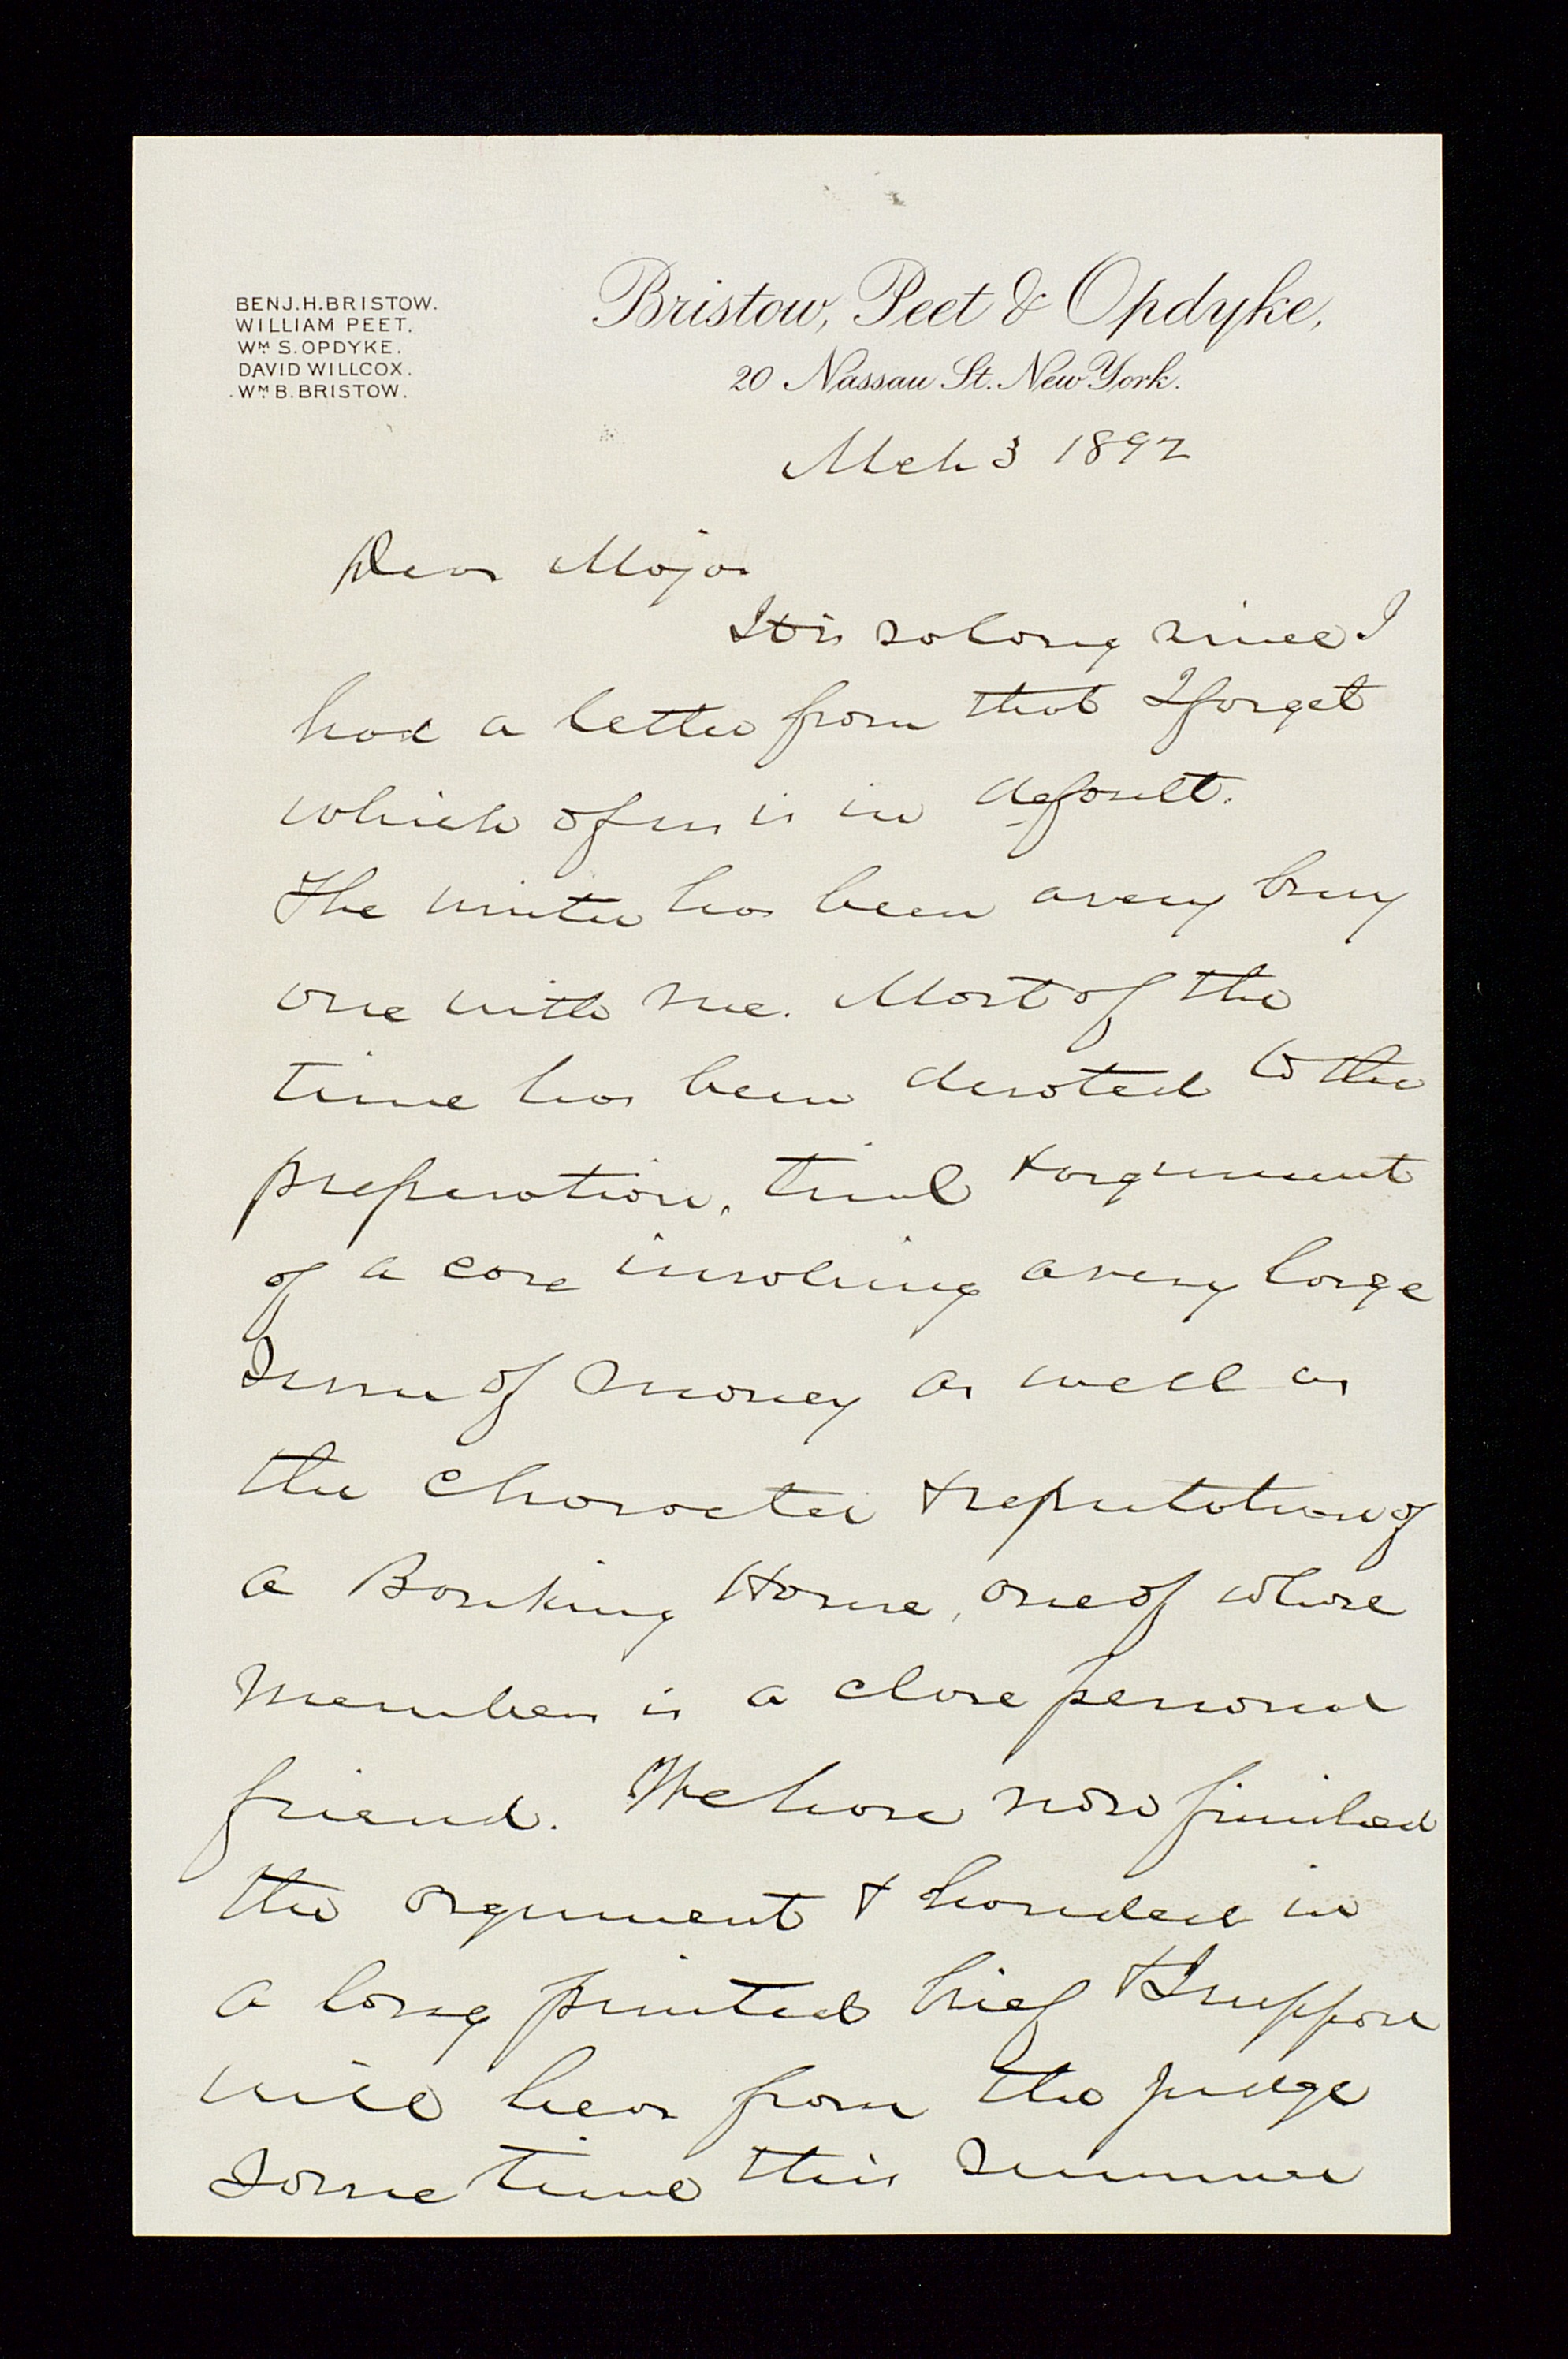 BENJ. H. BRISTOW.
WILLIAM PEET.
WM. S. OPDYKE.
DAVID WILLCOX.
WM. B. BRISTOW.
Bristow, Peet & Opdyke,
20 Nassau St. New York.
Mch 3 1892
Dear Major
It is so long since I
had a letter from that I forget
which of us is in default.
The winter has been a very busy
one with me. Most of the
time has been devoted to the
preparation, trial & argument
of a case involving a very large
sum of money as well as
the character & reputation of
a Banking House, one of whose
members is a close personal
friend. We have now finished
the argument & handed in
a long printed brief & I suppose
will hear from the judge
some time this summer